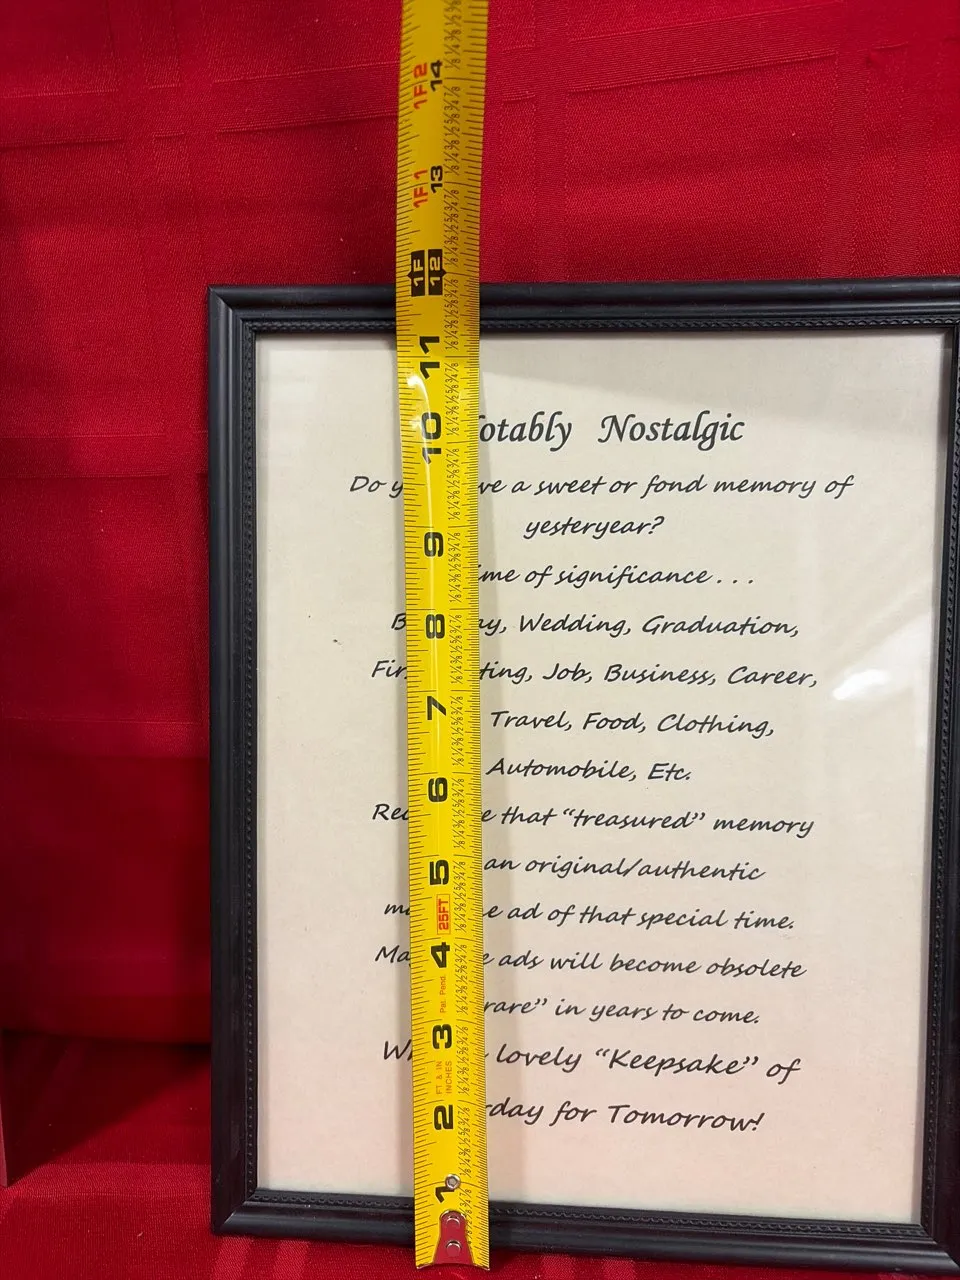 1F 2
14
1F 1
13
1F
12
11
10
9
8
7
6
5
25FT
4
Pat. Pend.
3
FT & IN
INCHES
2
1
otably Nostalgic
Do y ve a sweet or fond memory of
yesteryear?
ime of significance . . .
B ay, Wedding, Graduation,
Fir ting, Job, Business, Career,
Travel, Food, Clothing,
Automobile, Etc.
Rec e that “treasured” memory
an original/authentic
ma e ad of that special time.
Ma e ads will become obsolete
rare” in years to come.
W lovely “Keepsake” of
rday for Tomorrow!